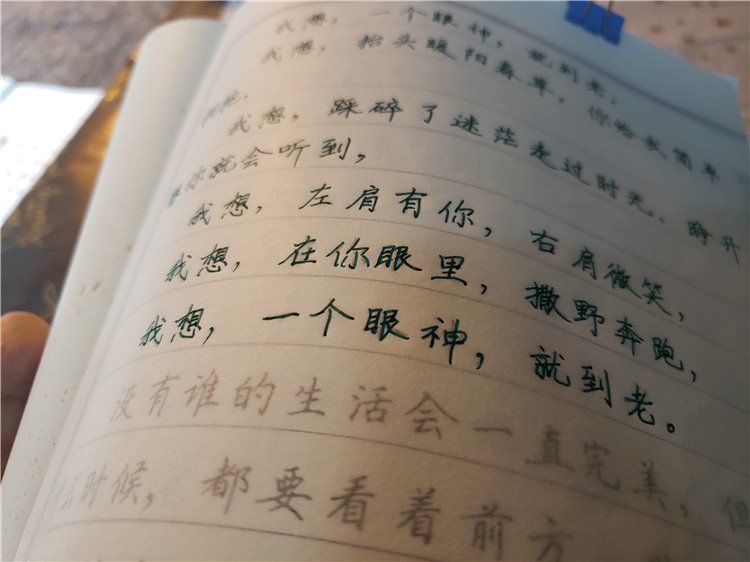 我想，一个眼神，就到老，
我想，抬头暖阳春草，你给我简单
我想，踩碎了迷茫走过时光，睁开
你就会听到，
我想，左肩有你，右肩微笑，
我想，在你眼里，撒野奔跑，
我想，一个眼神，就到老。
没有谁的生活会一直完美，但
时候，都要看着前方